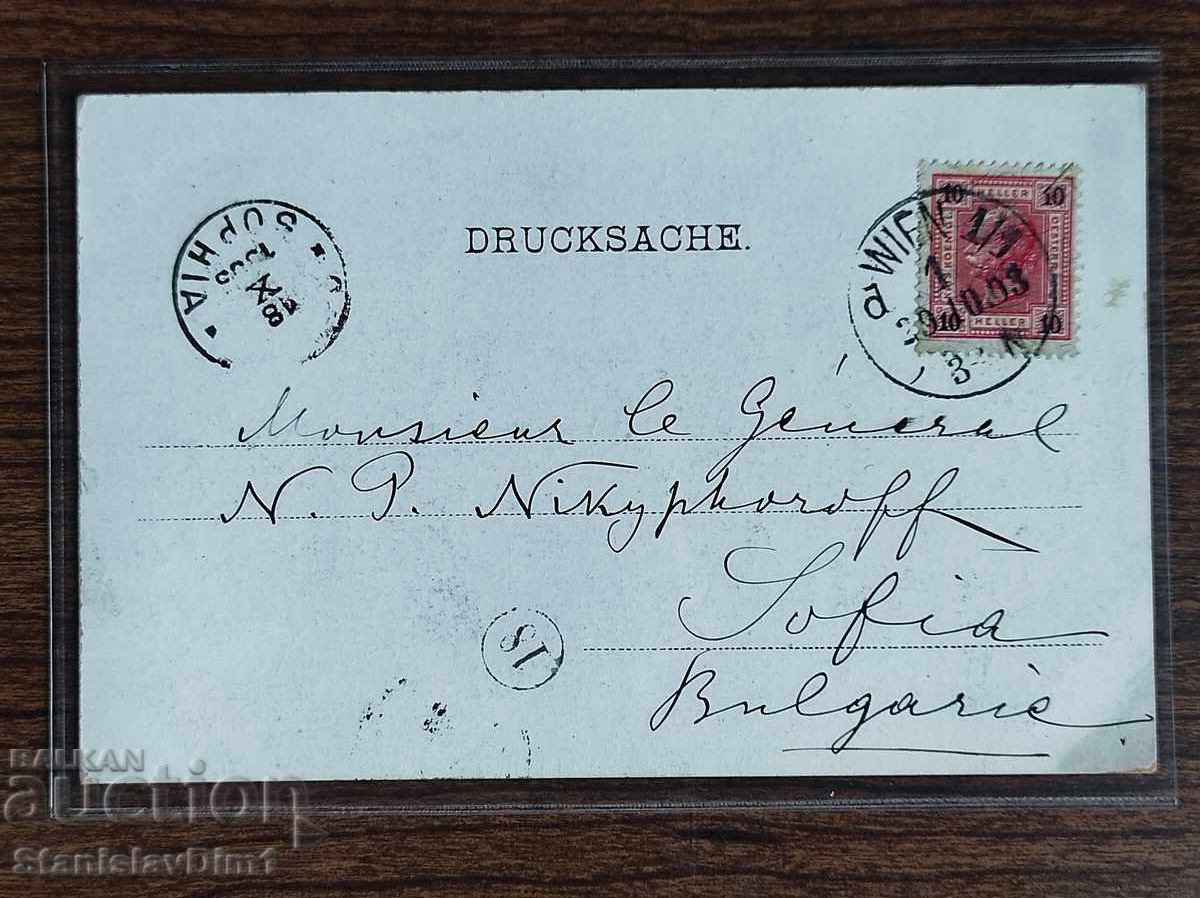 DRUCKSACHE.
SOPHIA
10 HELLER 10
WIEN 1/1
1
10.03
10 HELLER 10
Monsieur le Général
N. P. Nikyphoroff
Sofia
Bulgarie
15
BALKAN
auction
StanislavDim1